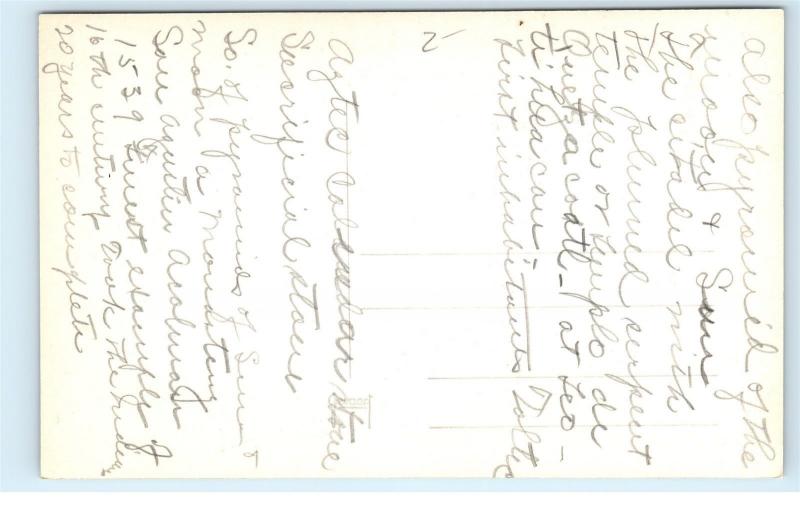 also pyramid of the
moon & Sun
the citadel with
the plumed serpent
temple or templo de
Quetzacoatl - at Teo-
tihuacan
First inhabitants Toltec
2
Aztec Calendar stone
Sacrificial stone
So. of pyramids of Sun &
moon a monastery
San Agustin Acolman
1539 finest example of
16th century Took the Indians
20 years to complete